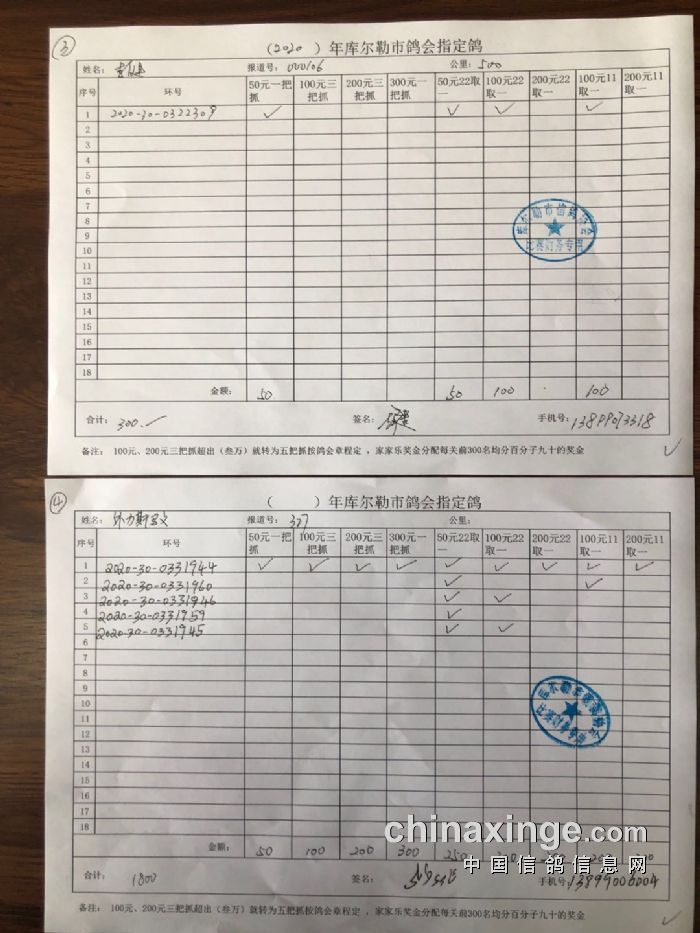 ③
（2020 ）年库尔勒市鸽会指定鸽
姓名： 报道号：000106 公里：500
序号 环号 50元一把抓 100元三把抓 200元三把抓 300元一把抓 50元22取一 100元22取一 200元22取一 100元11取一 200元11取一
1 2020-30-0322309 ✓ ✓ ✓ ✓
2
3
4
5
6
7
8
9
10
11
12
13
14
15
16
17
18
金额： 50 50 100 100
合计： 300 签名： 手机号：13899073318
备注： 100元、200元三把抓超出（叁万）就转为五把抓按鸽会章程定，家家乐奖金分配每关前300名均分百分子九十的奖金
④
（ ）年库尔勒市鸽会指定鸽
姓名： 报道号：307 公里：
序号 环号 50元一把抓 100元三把抓 200元三把抓 300元一把抓 50元22取一 100元22取一 200元22取一 100元11取一 200元11取一
1 2020-30-0331944 ✓ ✓ ✓ ✓ ✓ ✓ ✓ ✓ ✓
2 2020-30-0331960 ✓ ✓
3 2020-30-0331946 ✓ ✓
4 2020-30-0331959 ✓
5 2020-30-0331945 ✓ ✓
6
7
8
9
10
11
12
13
14
15
16
17
18
金额： 50 100 200 300 250
合计： 1800 签名： 手机号：13899000004
备注： 100元、200元三把抓超出（叁万）就转为五把抓按鸽会章程定，家家乐奖金分配每关前300名均分百分子九十的奖金
chinaxinge.com
中国信鸽信息网